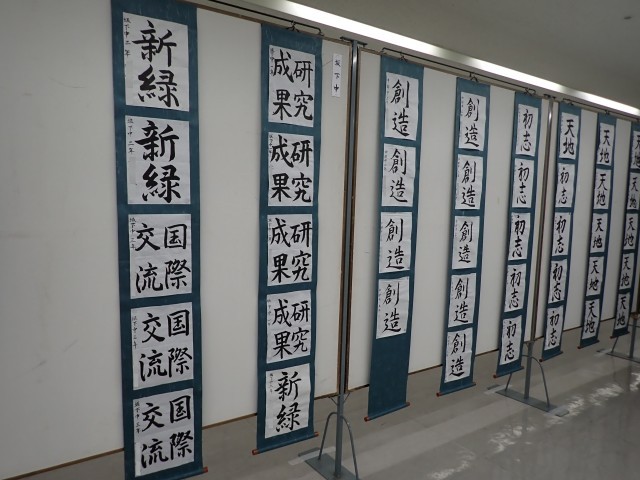 新緑
新緑
国際
交流
国際
交流
国際
交流
研究
成果
研究
成果
研究
成果
研究
成果
新緑
坂下中
創造
創造
創造
創造
創造
創造
創造
創造
創造
初志
初志
初志
初志
初志
天地
初志
初志
初志
初志
天地
天地
天地
天地
天地